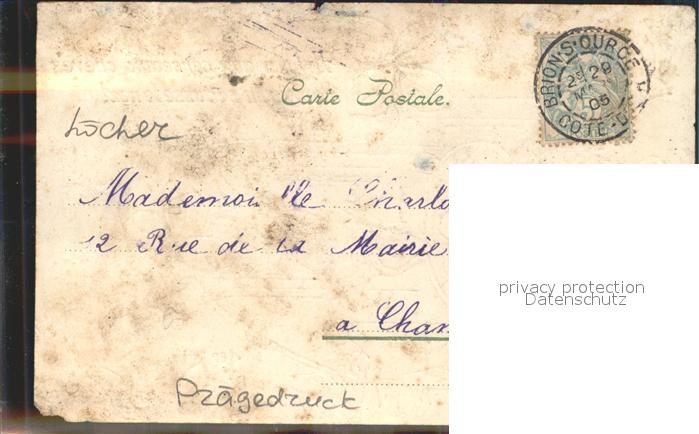 Carte Postale.
BRION-S-OURCE
2E 29
05
COTE-D
Löcher
Mademoiselle Charlo
12 Rue de la Mairie
a Cham
privacy protection
Datenschutz
Prägedruck